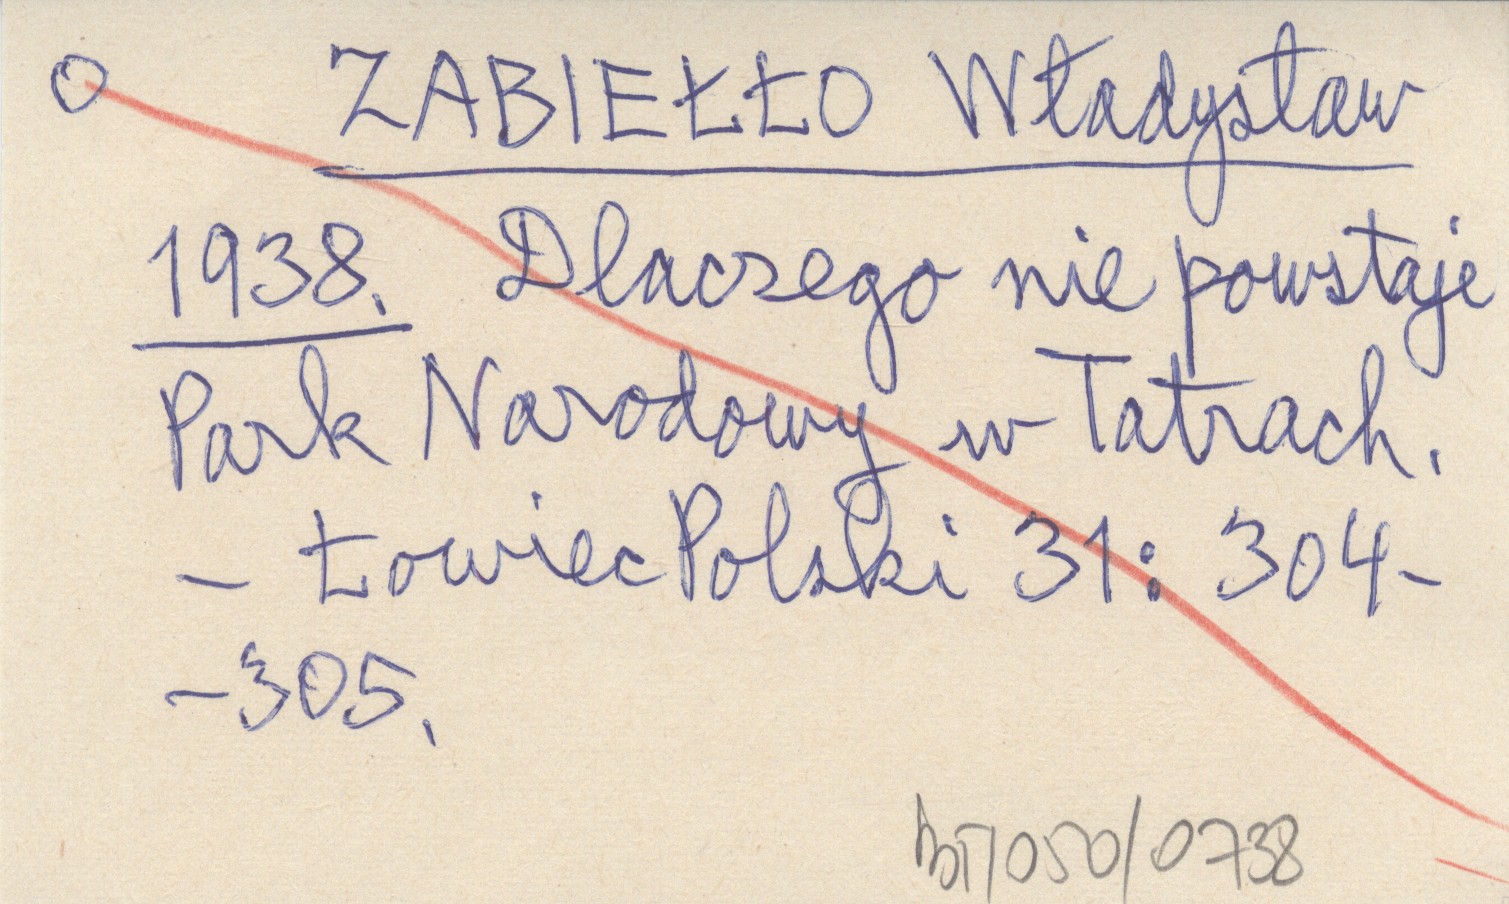 O ZABIEŁŁO Władysław
1938. Dlaczego nie powstaje
Park Narodowy w Tatrach.
– Łowiec Polski 31: 304-
-305.
BT/050/0738